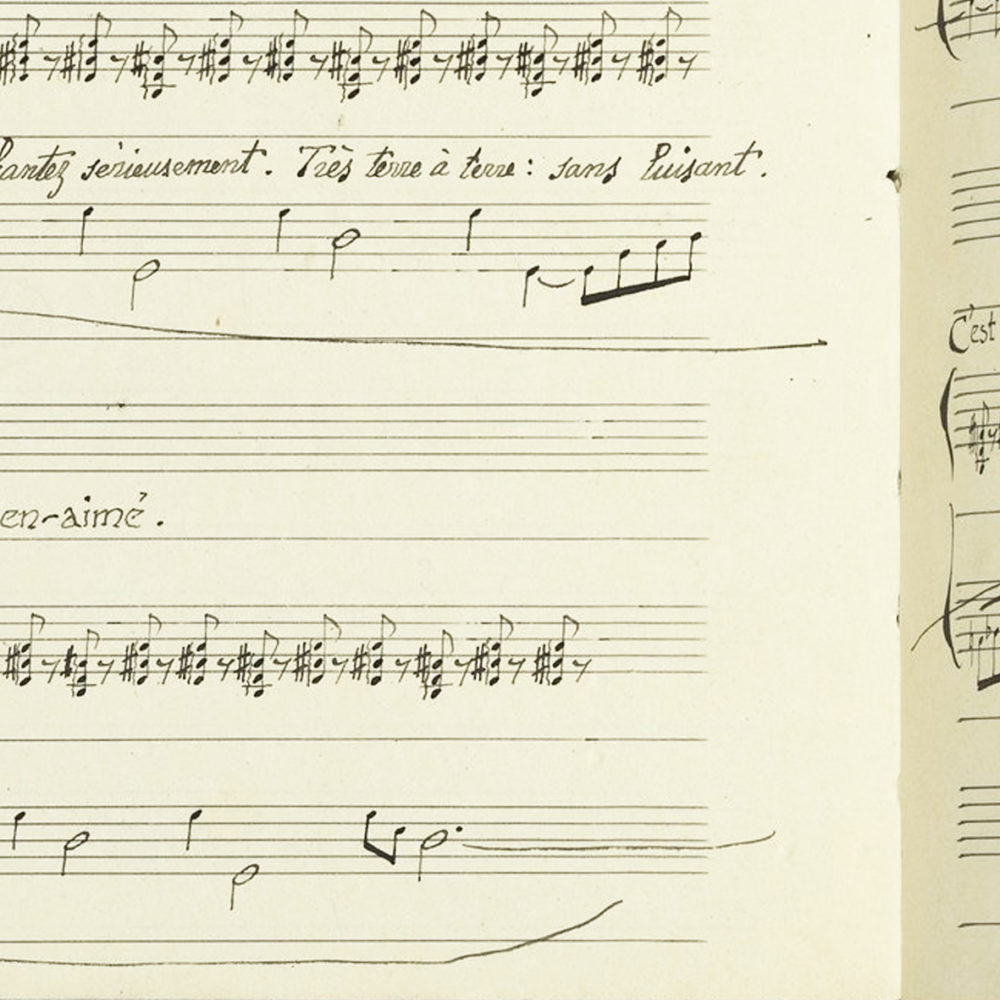 antez sérieusement. Très terre à terre: sans luisant.
en-aimé.
C'est